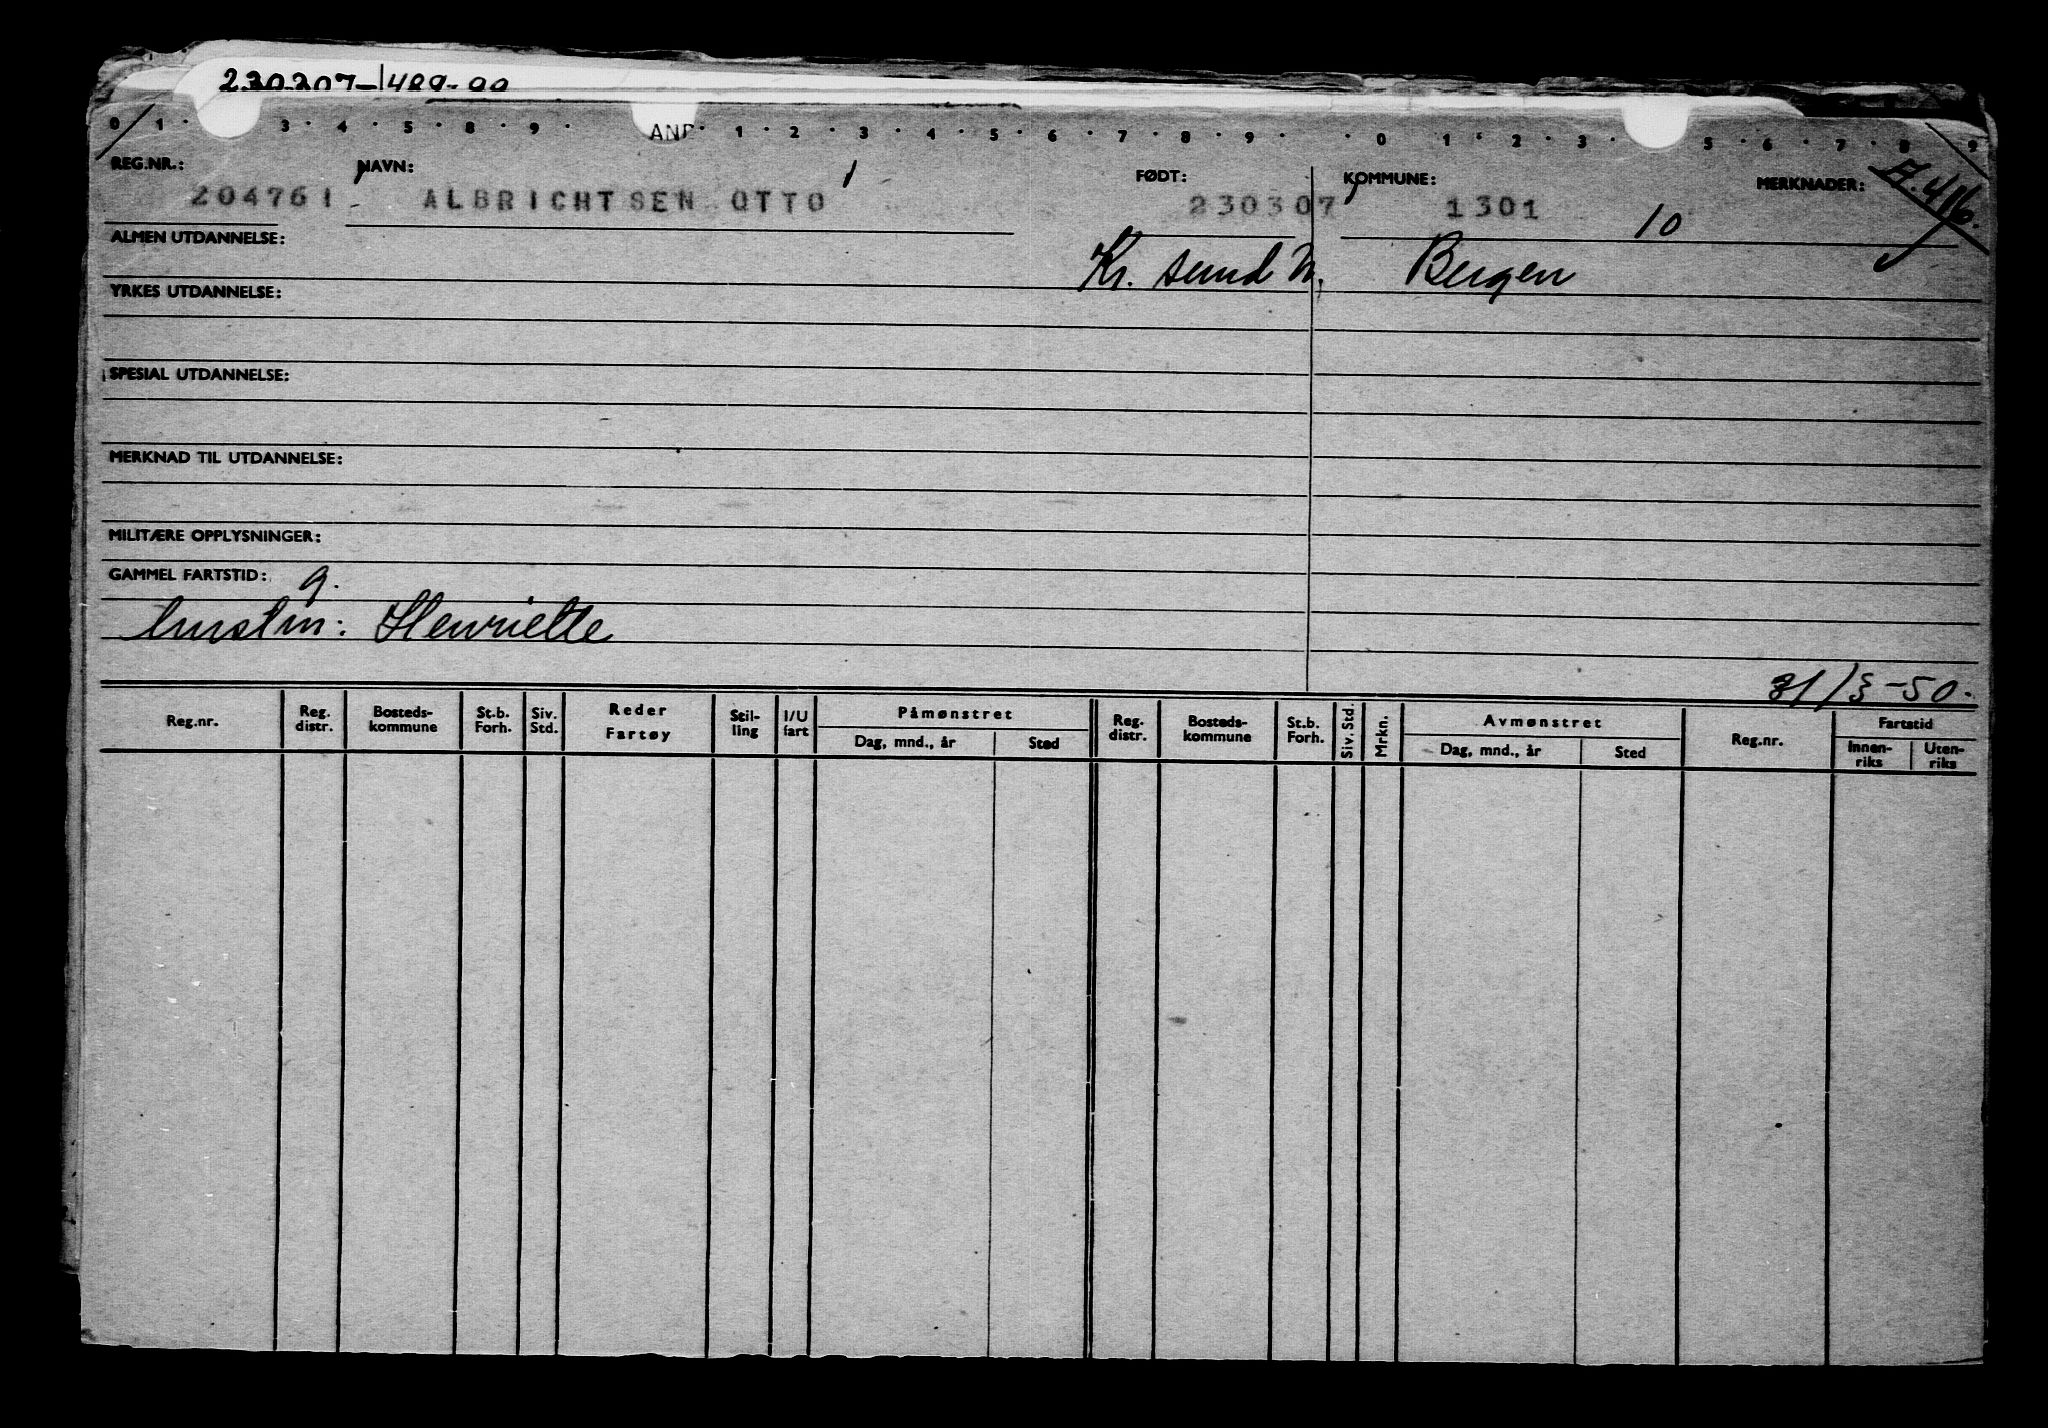 230307-1489-00
0 1 · 3 · 4 · 5 · 8 · 9 · AND · 1 · 2 · 3 · 4 · 5 · 6 · 7 · 8 · 9 · · 0 1 · 2 · 3 · 5 · 6 · 7 · 8 9
REG.NR.: NAVN: FØDT: KOMMUNE: MERKNADER:
204761 ALBRICHTSEN OTTO 230307 1301 10
ALMEN UTDANNELSE: Kr. sund N, Bergen
YRKES UTDANNELSE:
SPESIAL UTDANNELSE:
MERKNAD TIL UTDANNELSE:
MILITÆRE OPPLYSNINGER:
GAMMEL FARTSTID: g.
Henriette
-50.
Reg.nr. Reg. distr. Bosteds-kommune St.b. Forh. Siv. Std. Reder Fartøy Stil-ling I/U fart Påmønstret Dag, mnd., år Sted Reg. distr. Bosteds-kommune St.b. Forh. Siv. Std. Mrkn. Avmønstret Dag, mnd., år Sted Reg.nr. Fartstid Innen-riks Uten-riks